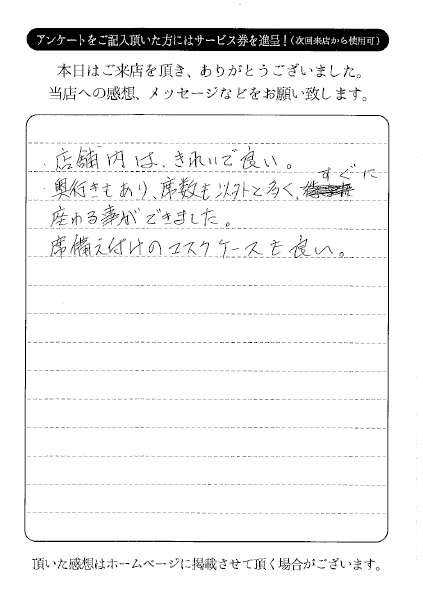 アンケートをご記入頂いた方にはサービス券を進呈!(次回来店から使用可)
本日はご来店を頂き、ありがとうございました。
当店への感想、メッセージなどをお願い致します。
店舗内は、きれいで良い。
奥行きもあり、席数も以外と多く、すぐに
座わる事ができました。
席備え付けのマスクケースも良い。
頂いた感想はホームページに掲載させて頂く場合がございます。